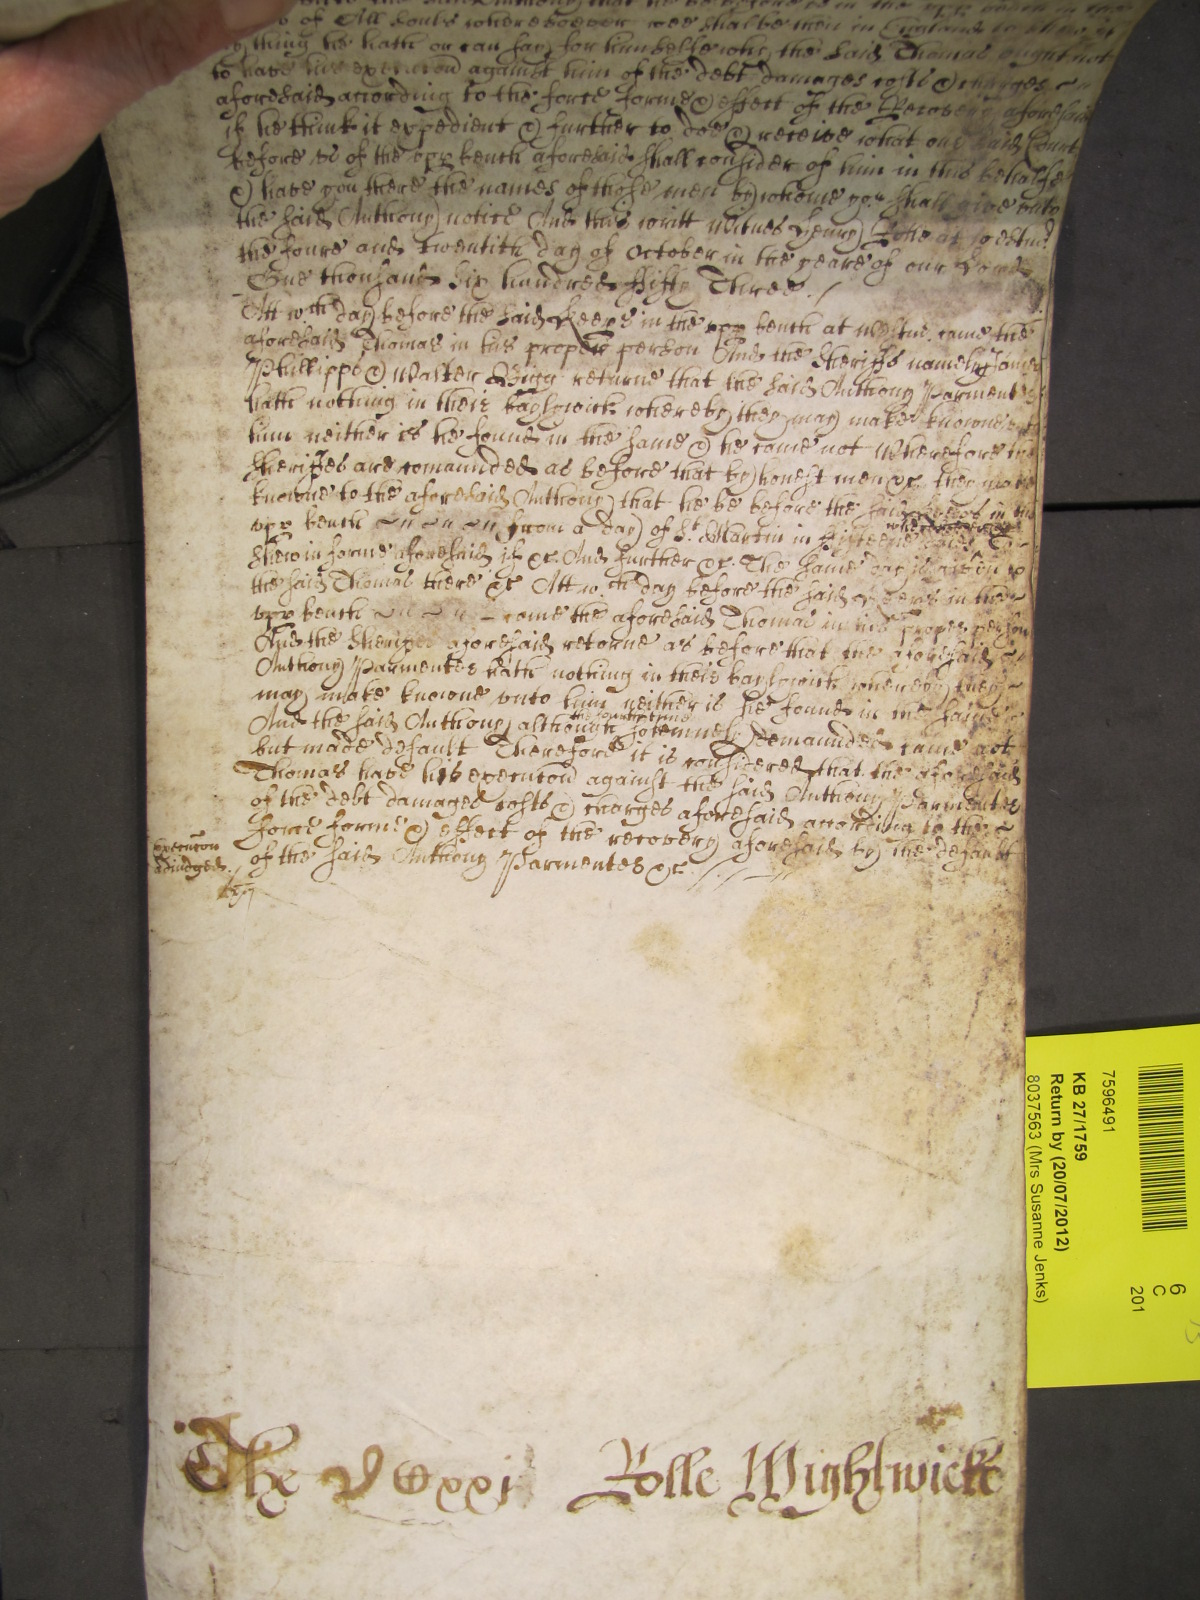 of All Soules wheresoever wee shalbe then in England to shew if
any thing he hath or can say for himselfe why the said Thomas ought not
to have his execucon against him of the debt damages costs & charges
aforesaid according to the force forme & effect of the Recovery aforesaid
if he think it expedient & further to doe & receive what our said Court
before us of the upp bench aforesaid shall consider of him in this behalfe
& have you there the names of those men by whome you shall give unto
the said Anthony notice And this writt Witnes Henry Rolle at Westmr
the foure and twentith day of October in the yeare of our Lord
One thousand six hundred ffifty Three
Att wch day before the said Keepers in the upp bench at Westm. came the
aforesaid Thomas in his proper person And the Sheriffs namely James
Phillipps & Walter Bigg returne that the said Anthony Parmenter
hath nothing in their baylywick whereby they may make knowne unto
him neither is he found in the same & he came not Wherefore the
Sheriffes are comaunded as before that by honest men &c. they make
knowne to the aforesaid Anthony that he be before the said Keepers in the
upp bench from a day of St. Martin in fifteene dayes To
shew in forme aforesaid if &c. And further &c. The same day is given to
the said Thomas there &c Att wch day before the said Keepers in the
upp bench came the aforesaid Thomas in his proper person
And the Sheriffes aforesaid returne as before that the aforesaid
Anthony Parmenter hath nothing in their baylywick whereby they
may make knowne unto him neither is he found in the same
And the said Anthony although the fourth tyme solemnely demaunded came not
but made default Therefore it is considered that the aforesaid
Thomas have his execucon against the said Anthony Parmenter
of the debt damages costs & charges aforesaid according to the
force forme & effect of the recovery aforesaid by the default
of the said Anthony Parmenter &c
execucon
adiudged
Rolle Wightwick
7596491
KB 27/1759
Return by (20/07/2012)
8037563 (Mrs Susanne Jenks)
6
C
201